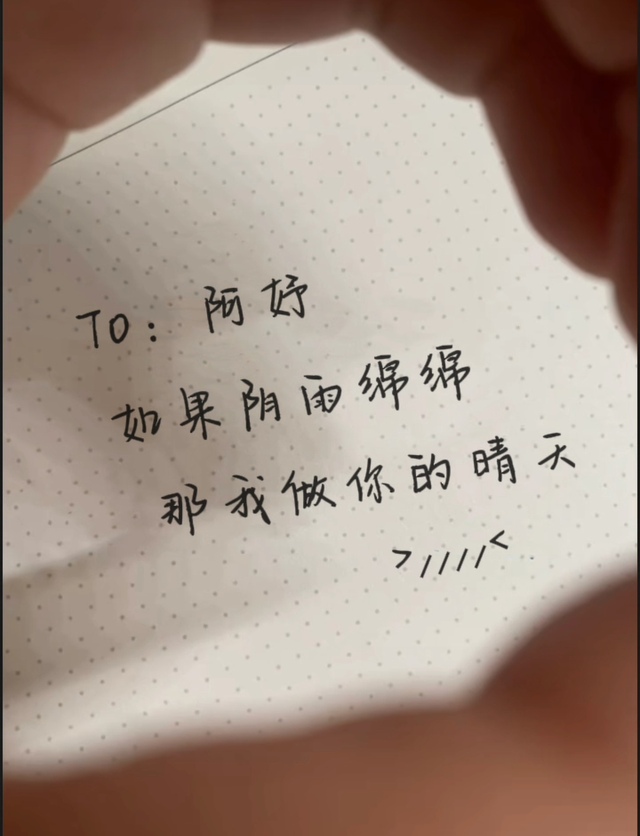 TO：阿妤
如果阴雨绵绵
那我做你的晴天
>////<